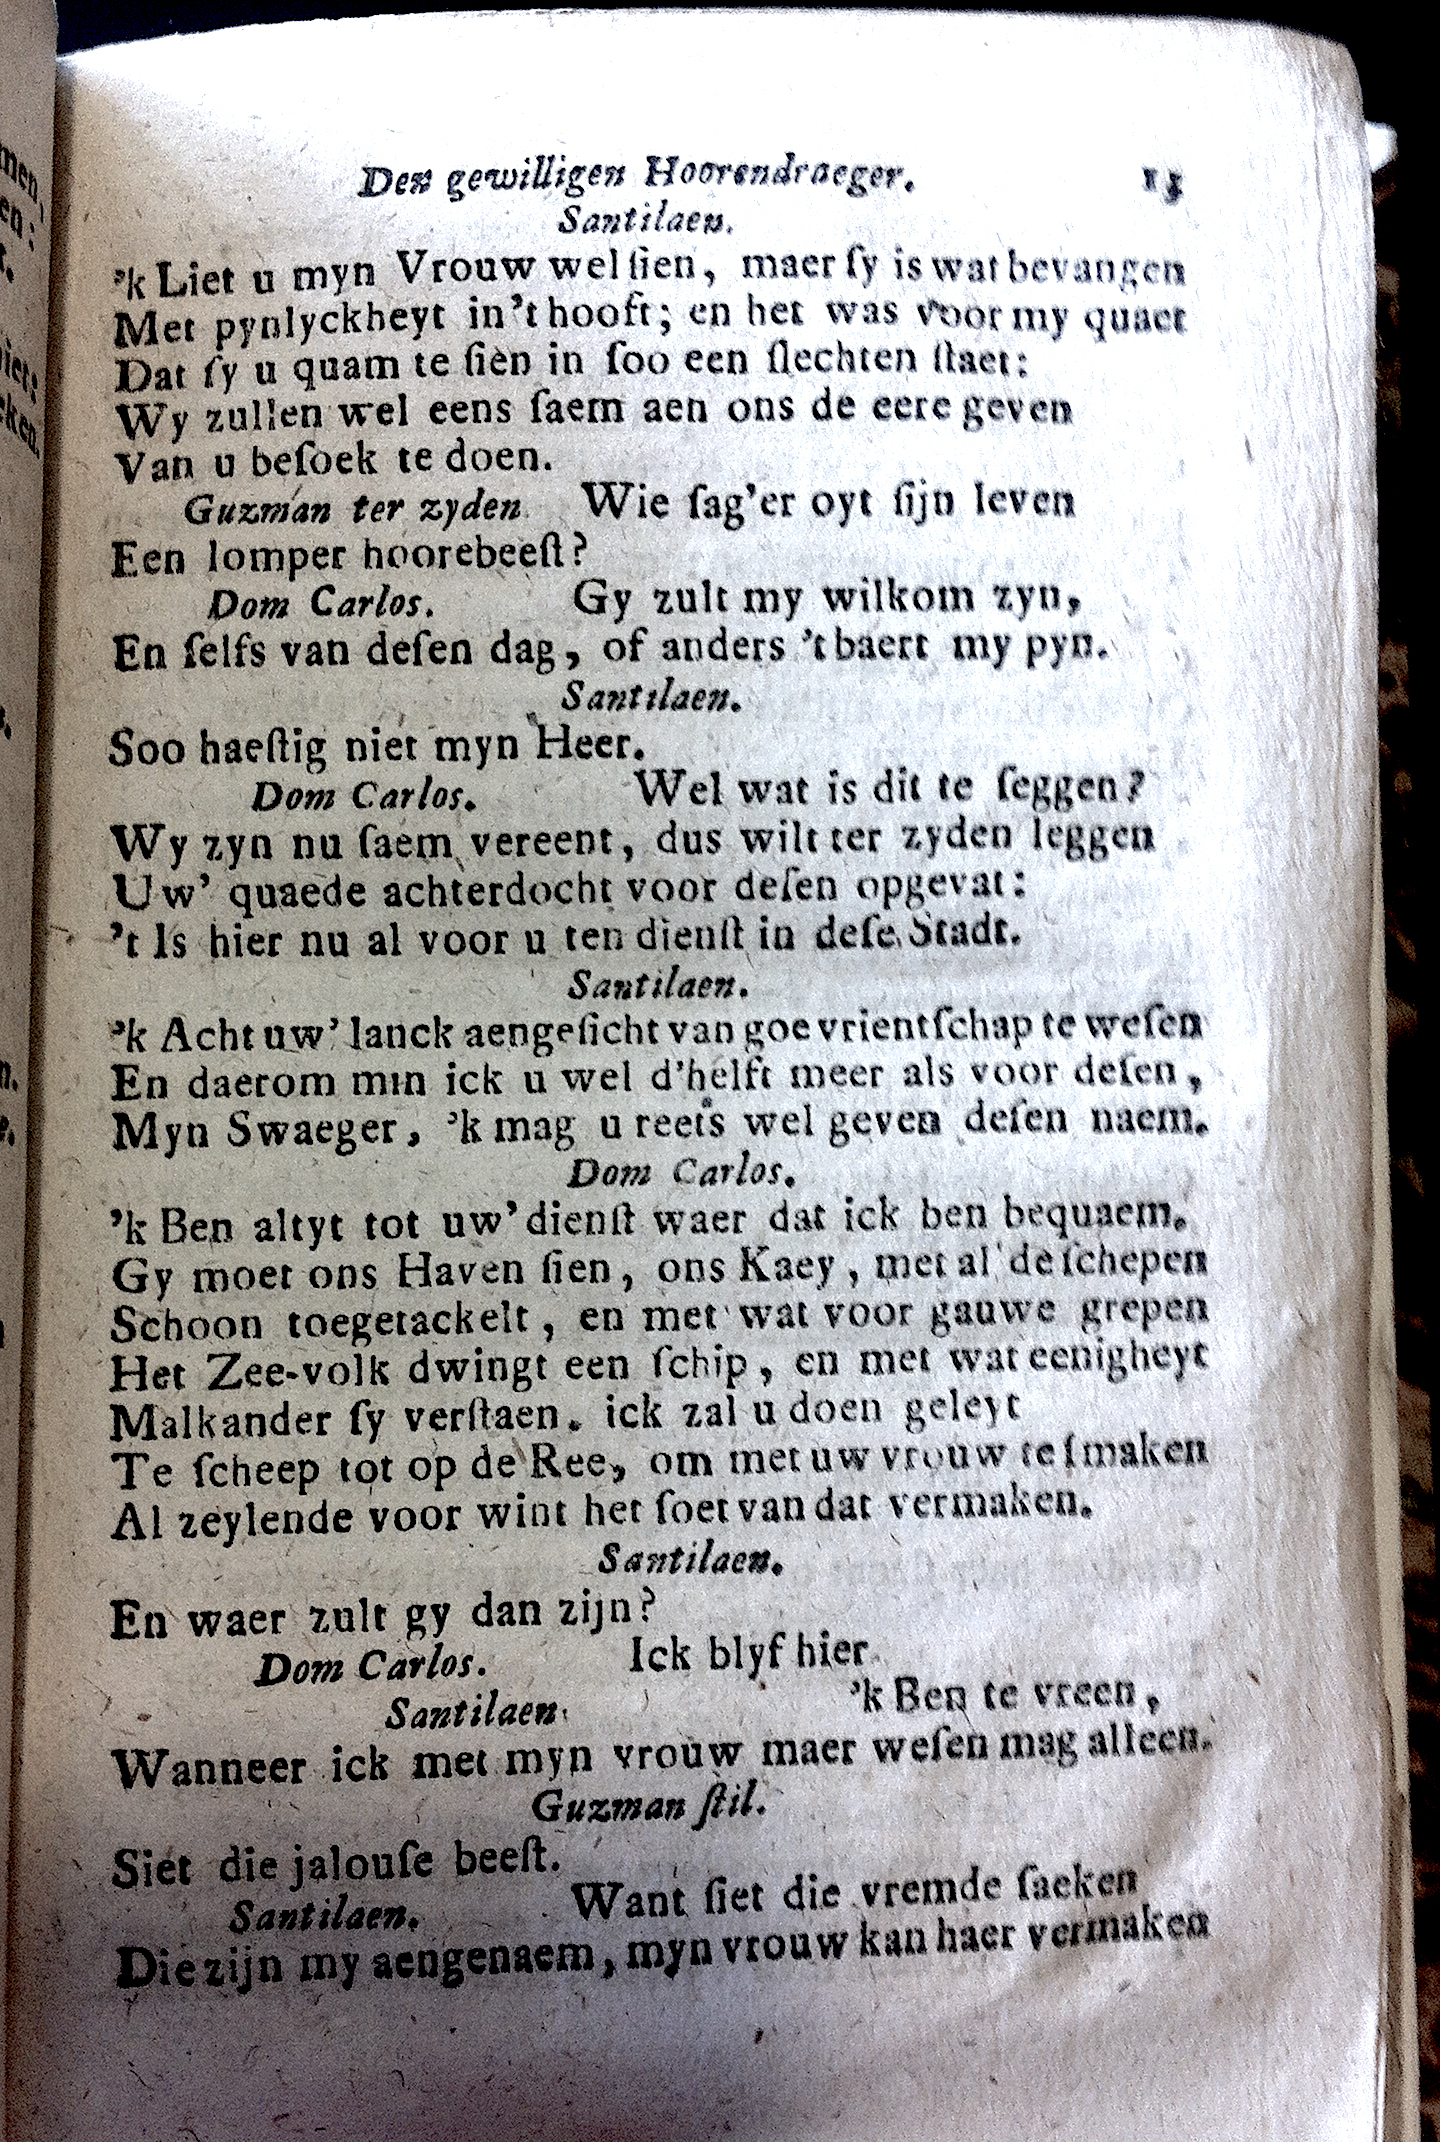 Den gewilligen Hoorendraeger. 15
Santilaen.
'k Liet u myn Vrouw wel ſien, maer ſy is wat bevangen
Met pynlyckheyt in't hooft; en het was voor my quaet
Dat ſy u quam te ſien in ſoo een ſlechten ſtaet:
Wy zullen wel eens ſaem aen ons de eere geven
Van u beſoek te doen.
Guzman ter zyden. Wie ſag'er oyt ſijn leven
Een lomper hoorebeeſt?
Dom Carlos. Gy zult my wilkom zyn,
En ſelfs van deſen dag, of anders 't baert my pyn.
Santilaen.
Soo haeſtig niet myn Heer.
Dom Carlos. Wel wat is dit te ſeggen?
Wy zyn nu ſaem vereent, dus wilt ter zyden leggen
Uw' quaede achterdocht voor deſen opgevat:
't Is hier nu al voor u ten dienſt in deſe Stadt.
Santilaen.
'k Acht uw' lanck aengeſicht van goe vrientſchap te weſen
En daerom min ick u wel d'helft meer als voor deſen,
Myn Swaeger, 'k mag u reets wel geven deſen naem.
Dom Carlos.
'k Ben altyt tot uw' dienſt waer dat ick ben bequaem.
Gy moet ons Haven ſien, ons Kaey, met al de ſchepen
Schoon toegetackelt, en met wat voor gauwe grepen
Het Zee-volk dwingt een ſchip, en met wat eenigheyt
Malkander ſy verſtaen. ick zal u doen geleyt
Te ſcheep tot op de Ree, om met uw vrouw te ſmaken
Al zeylende voor wint het ſoet van dat vermaken.
Santilaen.
En waer zult gy dan zijn?
Dom Carlos. Ick blyf hier.
Santilaen. 'k Ben te vreen,
Wanneer ick met myn vrouw maer weſen mag alleen.
Guzman ſtil.
Siet die jalouſe beeſt.
Santilaen. Want ſiet die vremde ſaeken
Die zijn my aengenaem, myn vrouw kan haer vermaken